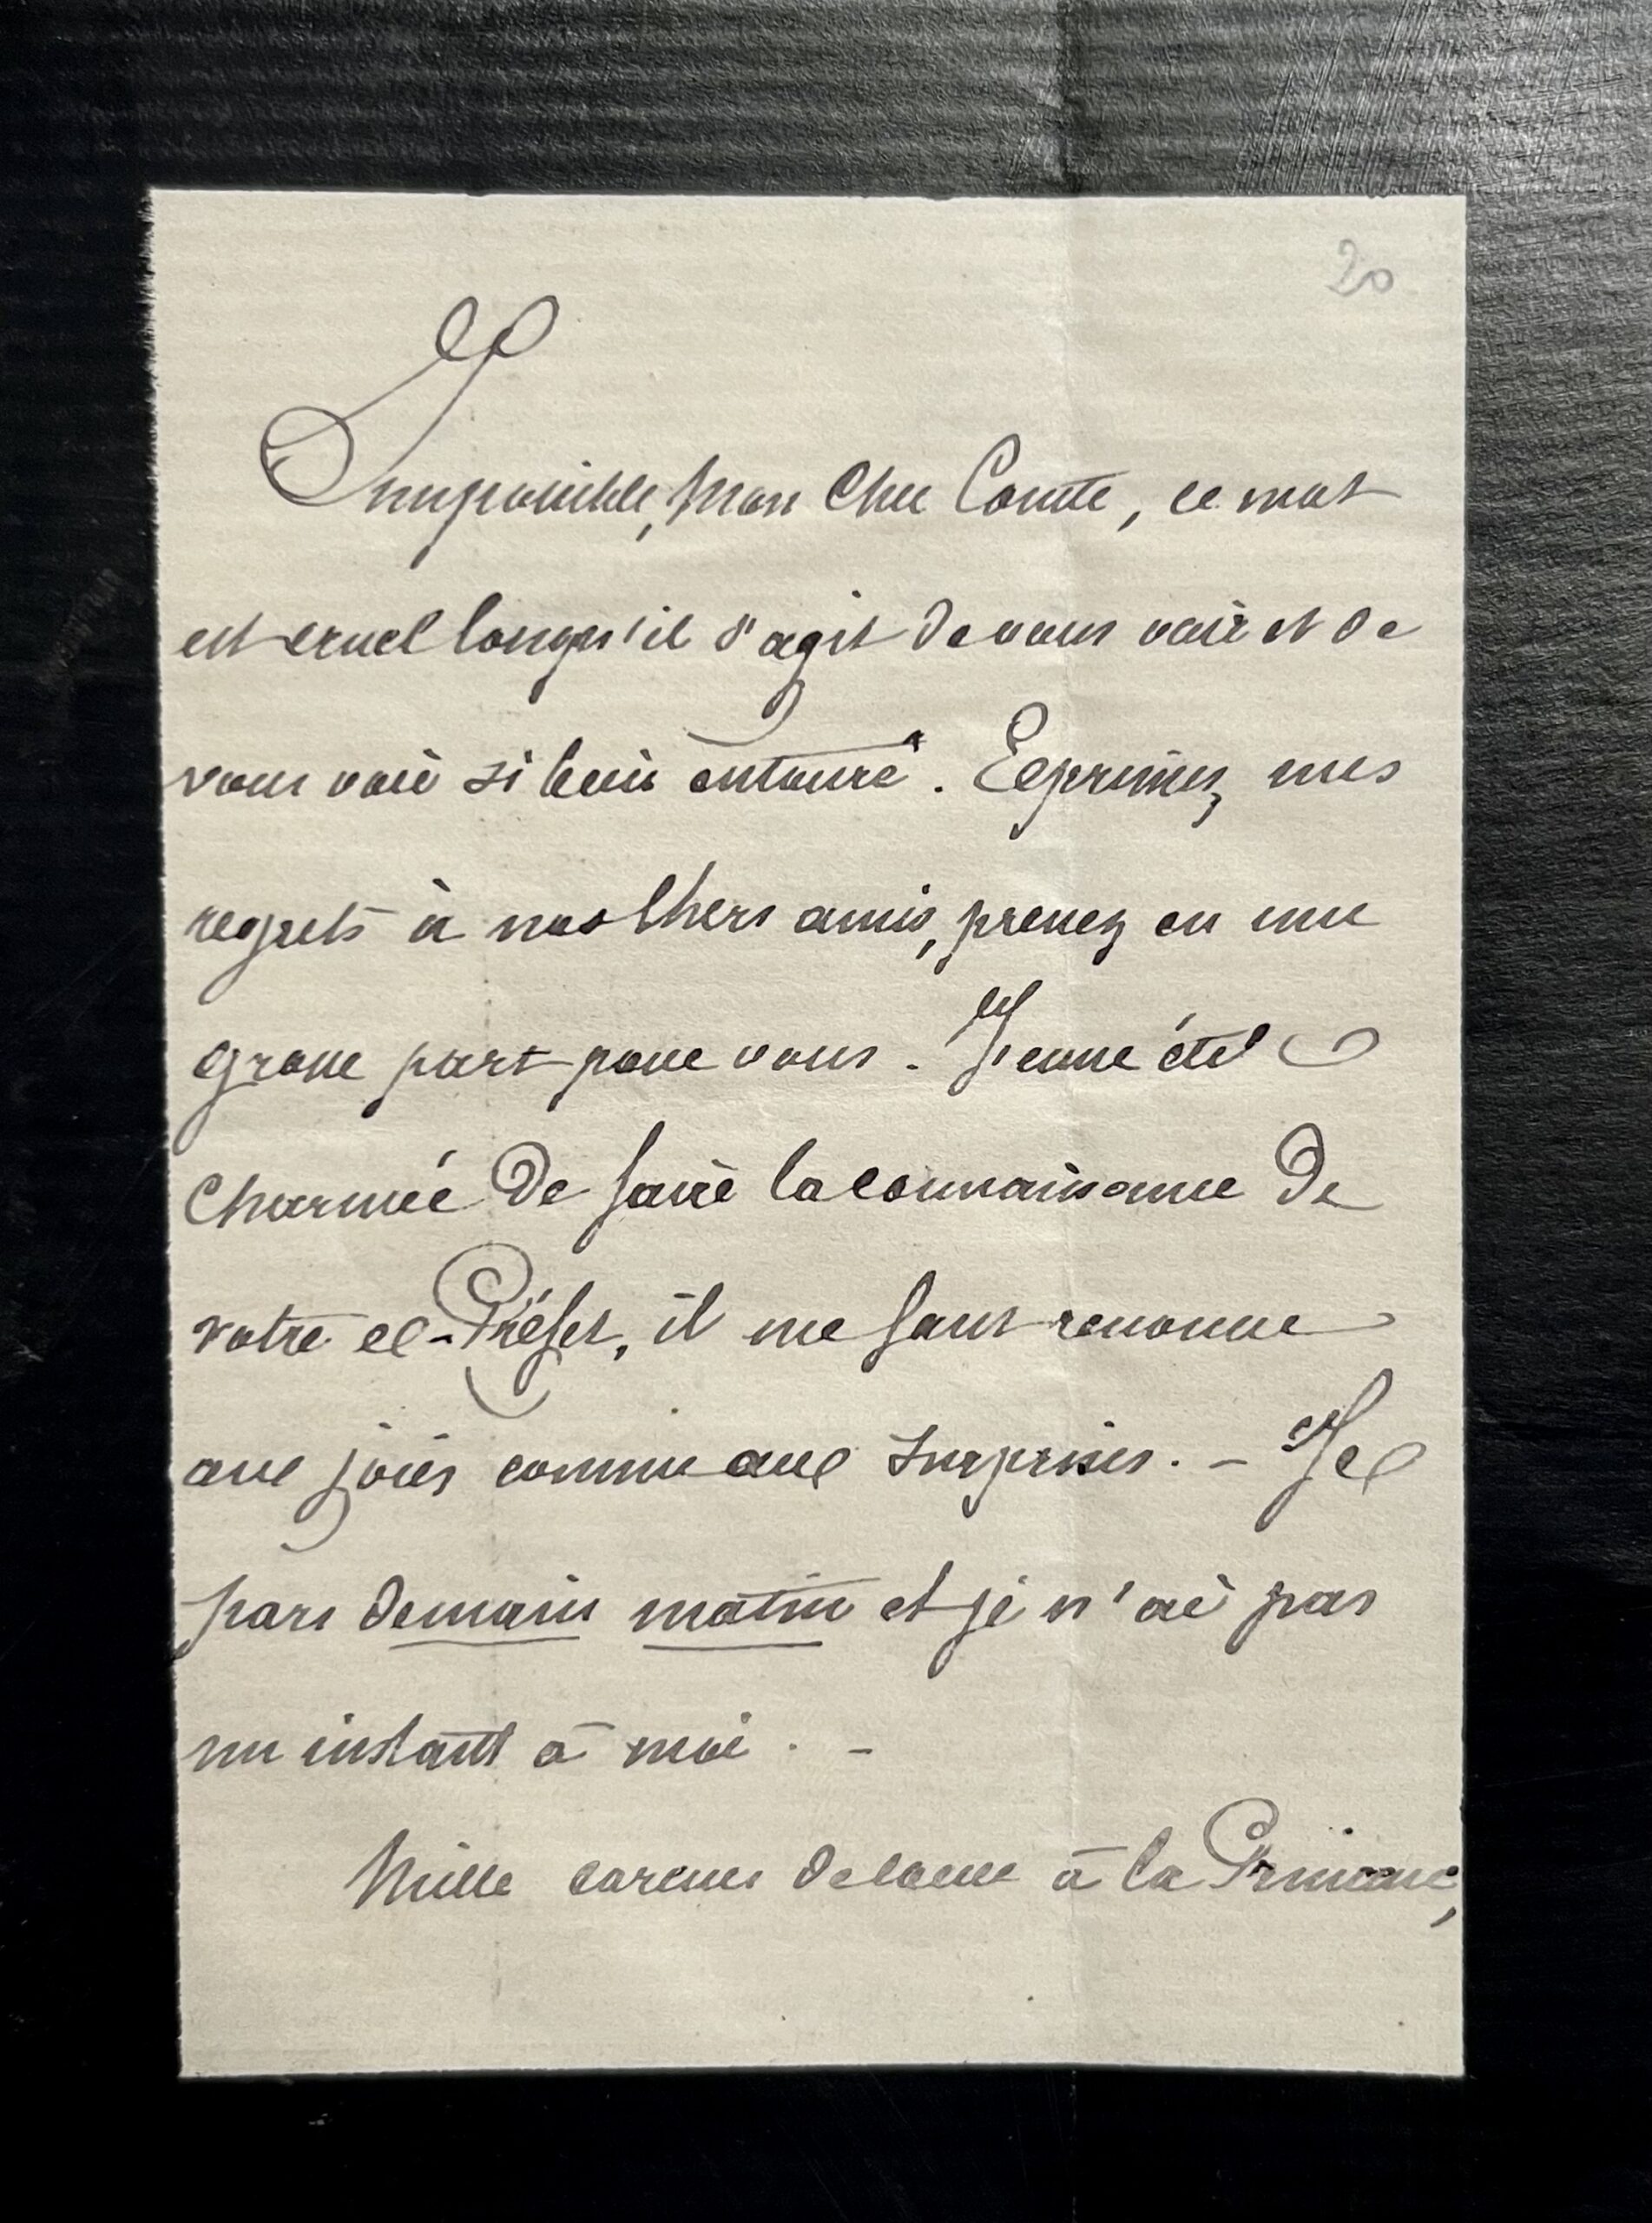 20
Impossible, Mon Cher Comte, ce mot
est cruel lorsqu'il s'agit de vous voir et de
vous voir si bien entouré. Exprimez mes
regrets à nos chers amis, prenez en une
grosse part pour vous. J'eusse été
charmée de faire la connaissance de
votre ex-Préfet, il me faut renoncer
aux joies comme aux surprises. - Je
pars demain matin et je n'ai pas
un instant à moi. -
Mille caresses de coeur à la Princesse,